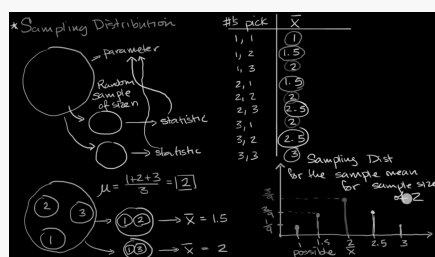 *Sampling Distribution
parameter
Random
sample
of size n
statistic
statistic
μ = (1+2+3)/3 = 2
2
3
1
1 2 → x̄ = 1.5
1 3 → x̄ = 2
#s pick x̄
1, 1 1
1, 2 1.5
1, 3 2
2, 1 1.5
2, 2 2
2, 3 2.5
3, 1 2
3, 2 2.5
3, 3 3
Sampling Dist
for the sample mean
for sample size
of 2
3/9
2/9
1/9
1 1.5 2 2.5 3
possible x̄